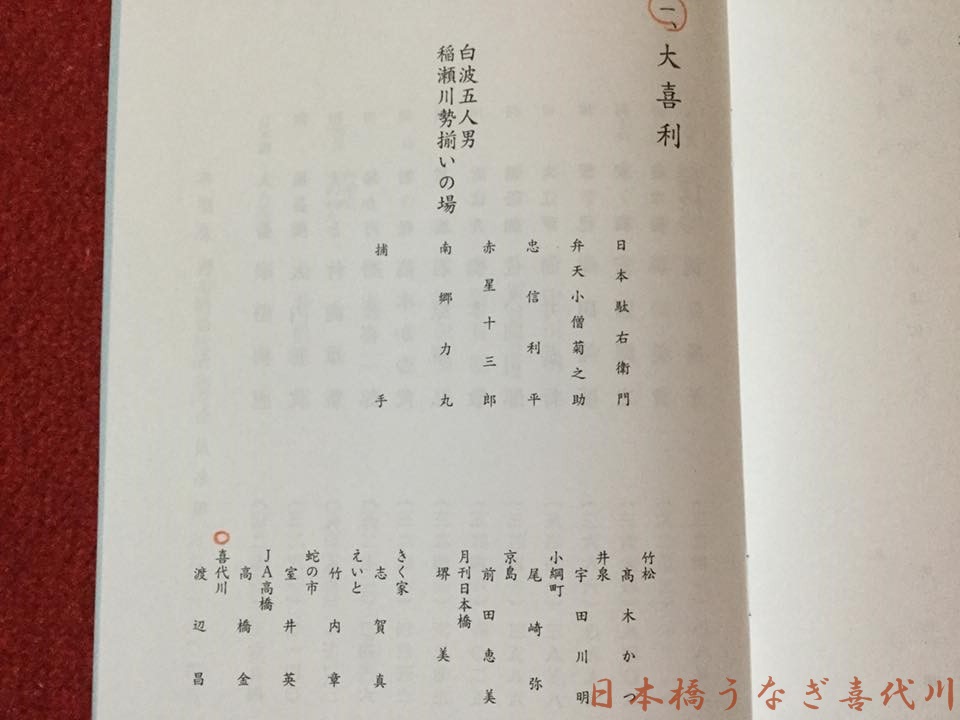 一、大喜利
白波五人男
稲瀬川勢揃いの場
日本駄右衛門
弁天小僧菊之助
忠信利平
赤星十三郎
南郷力丸
捕手
竹松
髙木かつ
井泉
宇田川明
小網町
尾崎弥
京島
前田恵美
月刊日本橋
堺美
きく家
志賀真
えいと
竹内章
蛇の市
室井英
JA高橋
高橋金
喜代川
渡辺昌
日本橋うなぎ喜代川